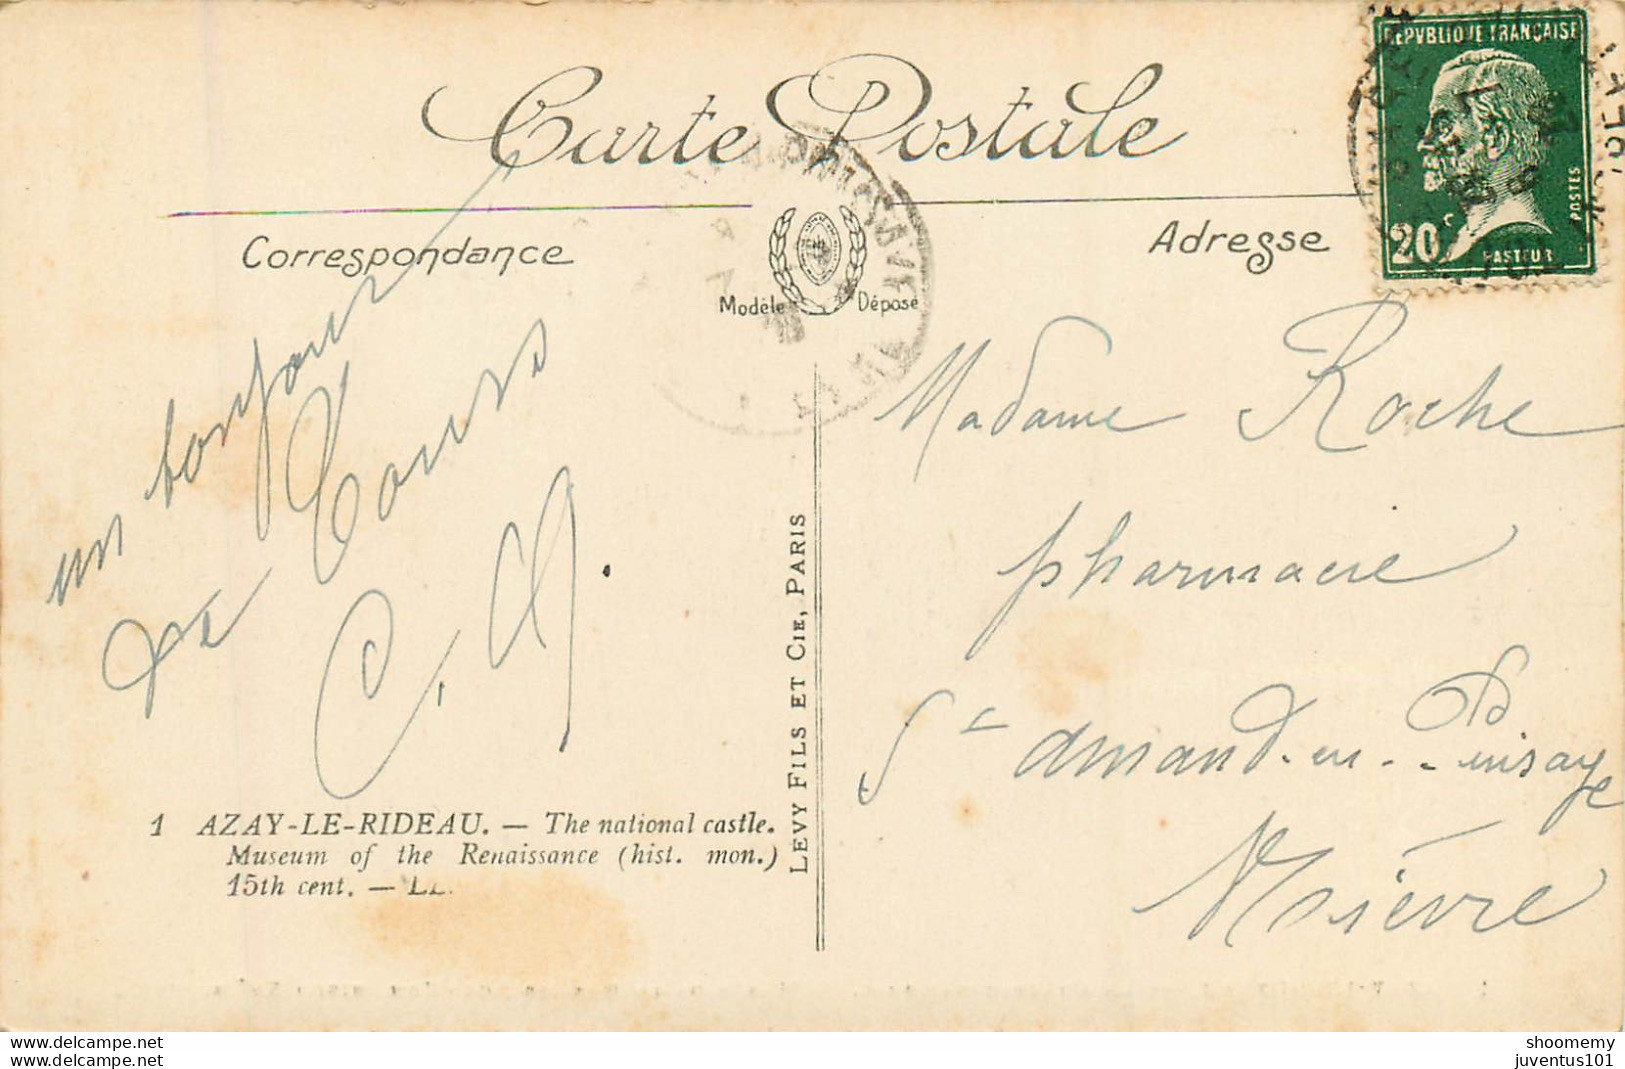 Carte Postale
REPVBLIQVE FRANÇAISE
POSTES
20c
PASTEUR
Correspondance
Adresse
Modèle Déposé
un bonjour
de Tours
Madame Roche
pharmacie
St Amand-en-Puisaye
Nièvre
LEVY FILS ET CIE, PARIS
1 AZAY-LE-RIDEAU. — The national castle.
Museum of the Renaissance (hist. mon.)
15th cent. — LL.
shoomemy
juventus101
www.delcampe.net
www.delcampe.net